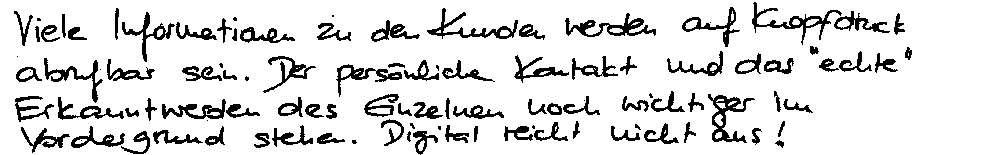 Viele Informationen zu den Kunden werden auf Knopfdruck
abrufbar sein. Der persönliche Kontakt und das "echte"
Erkanntwerden des Einzelnen noch wichtiger im
Vordergrund stehen. Digital reicht nicht aus!